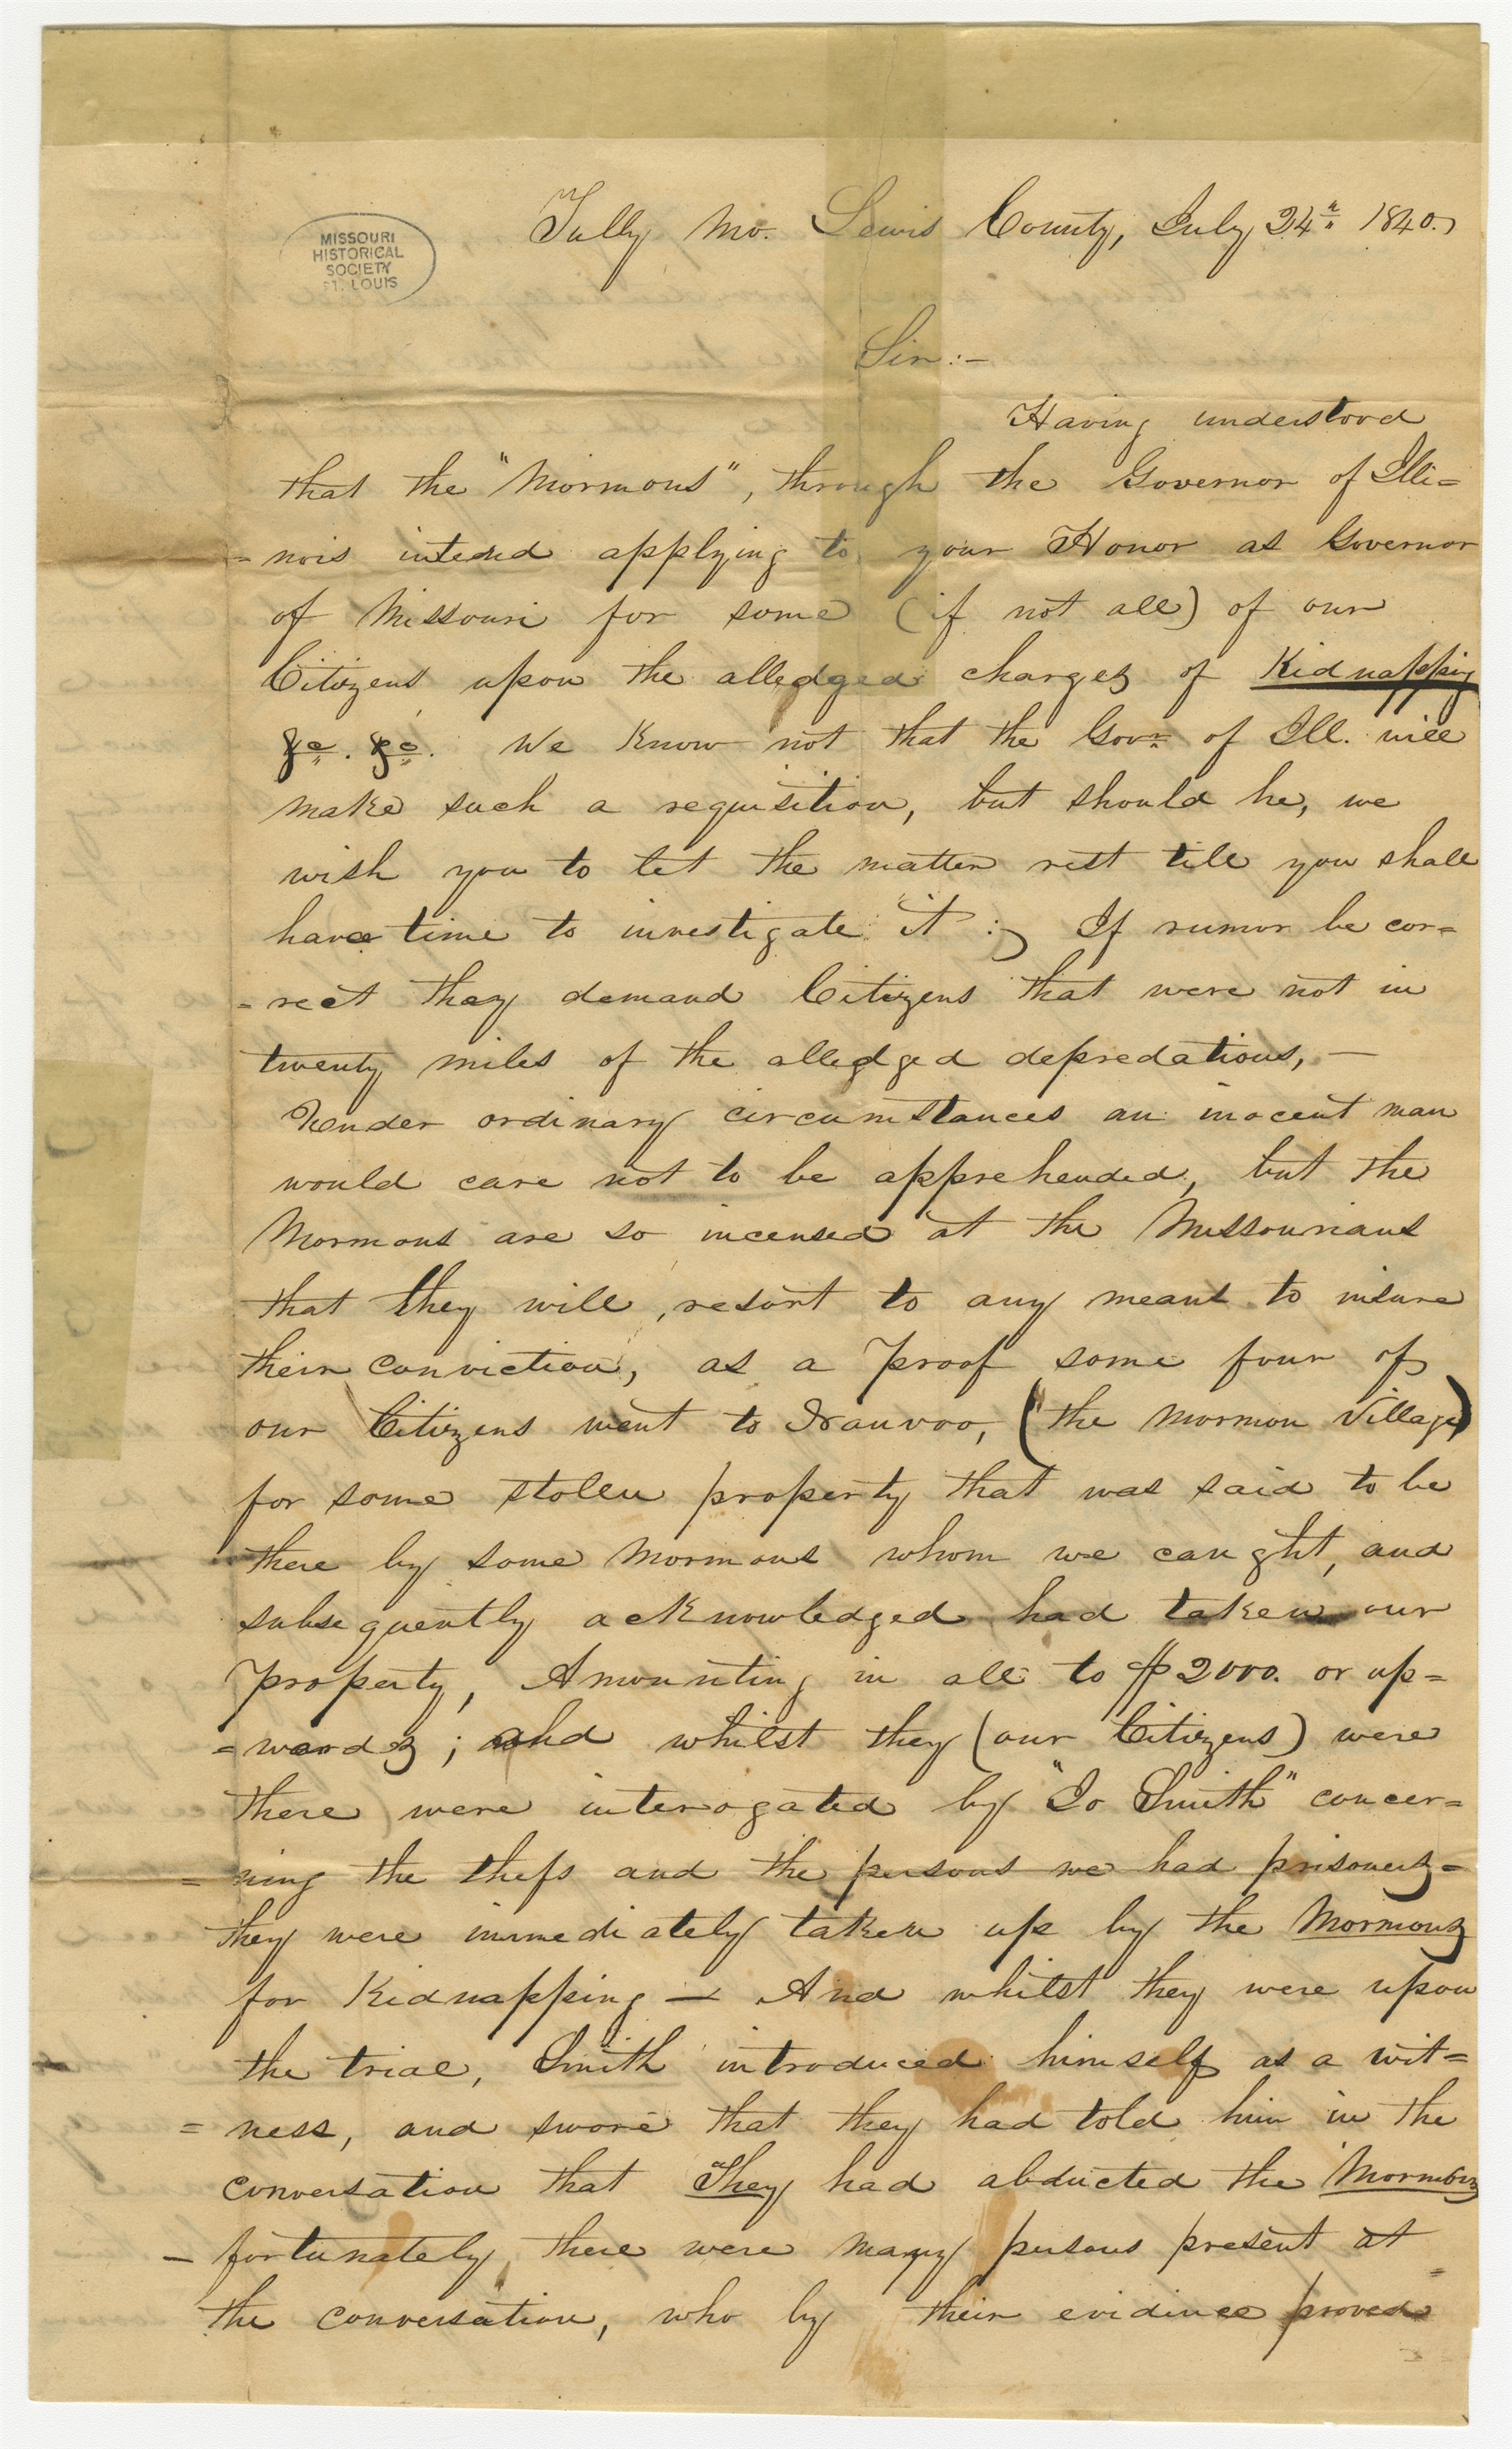 MISSOURI
HISTORICAL
SOCIETY
ST. LOUIS
Tully Mo. Lewis County, July 24th 1840.
Sir:—
Having understood
that the "Mormons", through the Governor of Illi=
=nois intend applying to your Honor as Governor
of Missouri for some (if not all) of our
Citizens upon the alledged charges of Kidnapping
&c. &c. We Know not that the Govr. of Ill. will
make such a requisition, but should he, we
wish you to let the matter rest till you shall
have time to investigate it :, If rumor be cor=
=rect they demand Citizens that were not in
twenty miles of the alledged depredations, —
Under ordinary circumstances an inocent man
would care not to be apprehended, but the
Mormons are so incensed at the Missourians
that they will, resort to any means to insure
their conviction, as a proof some four of
our Citizens went to Nauvoo, (the Mormon Village)
for some stolen property that was said to be
there by some Mormons whom we caught, and
subsequently acknowledged had taken our
property, Amounting in all to $2000. or up=
=wards; and whilst they (our Citizens) were
there were interogated by "Jo Smith" concer=
=ning the thefs and the persons we had prisoners=
they were immediately taken up by the Mormons
for Kidnapping — And whilst they were upon
the trial, Smith introduced himself as a wit=
=ness, and swore that they had told him in the
conversation that They had abducted the Mormons
— fortunately, there were many persons present at
the conversation, who by their evidince proved